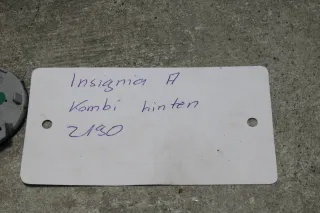 Insignia A
Kombi hinten
2190